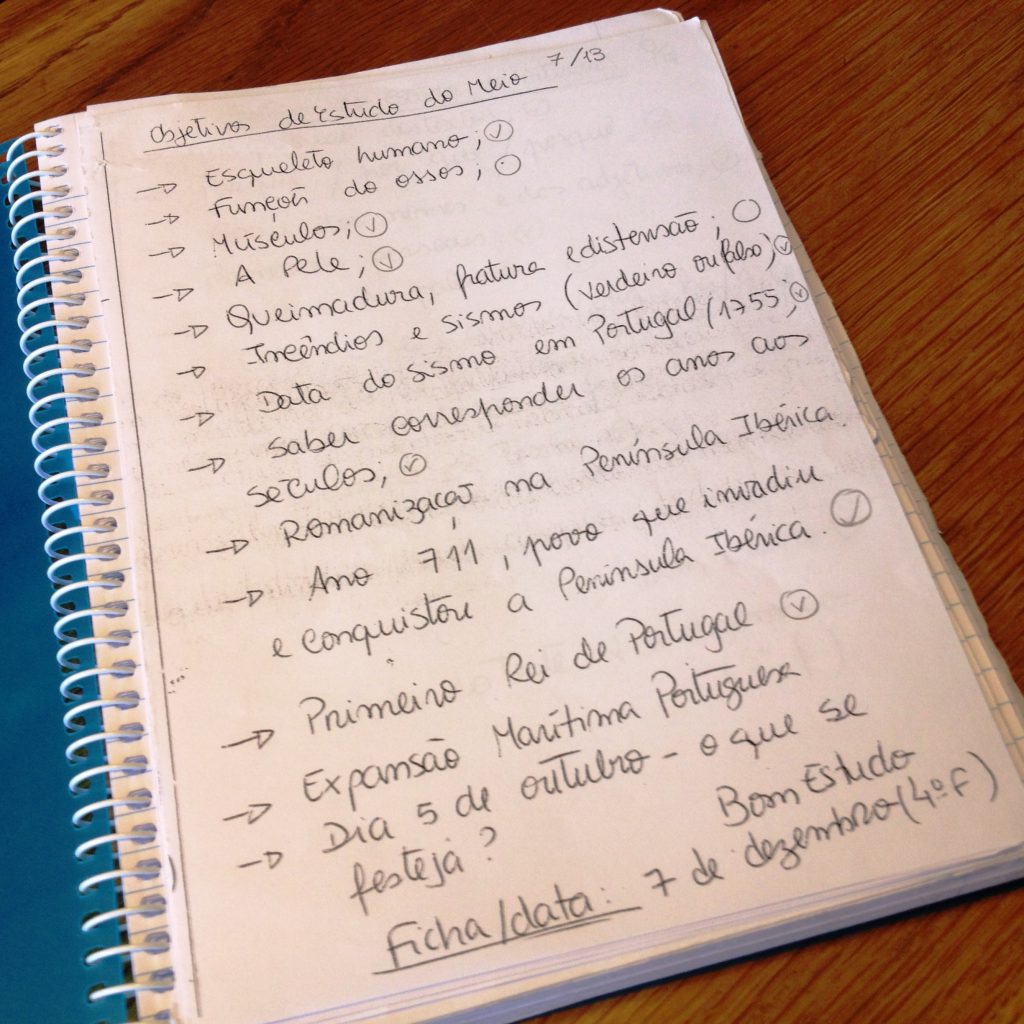 Objetivos de Estudo do Meio 7/13
→ Esqueleto humano;
→ Função do ossos;
→ Músculos;
→ A Pele;
→ Queimadura, fratura e distensão;
→ Incêndios e sismos (verdeiro ou falso);
→ Data do sismo em Portugal (1755;
→ Saber corresponder os anos aos
séculos;
→ Romanização na Península Ibérica.
→ Ano 711, povo que invadiu
e conquistou a Península Ibérica.
→ Primeiro Rei de Portugal
→ Expansão Marítima Portuguesa
→ Dia 5 de outubro - o que se
festeja?
Bom Estudo
Ficha/data: 7 de dezembro (4ºF)